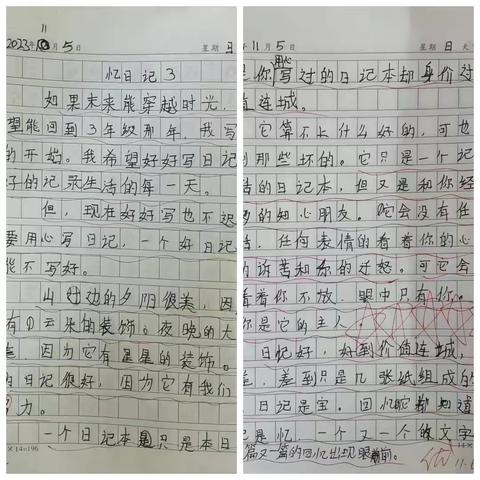 11
2023年 月5日 星期 日
忆日记3
如果未来能穿越时光,
望能回到3年级那年,我写
的开始。我希望好好写日记
好的记录生活的每一天。
但,现在好好写也不迟
要用心写日记,一个好日记
能不写好。
山边的夕阳很美,因
有白云朵的装饰。夜晚的大
美,因为它有星星的装饰。
的日记很好,因为它有我们
力。
一个日记本是只是本日
×14=196
年11月5日 星期 日 天
用心
是你写过的日记本却身价对
值连城。
它算不上什么好的,可也
到那些坏的。它只是一个记
活的日记本,但又是和你经
多的知心朋友。它会没有任
言,任何表情的看着你的心
的诉苦和你的迁怒。可它会
看着你不放,眼中只有你。
你是它的主人
日忆好,好到价值连城,
差,差到只是几张纸组成的
日记是宝。回忆它都知道
记是忆,一个又一个的文字
篇又一篇的回忆出现眼前。
11.6